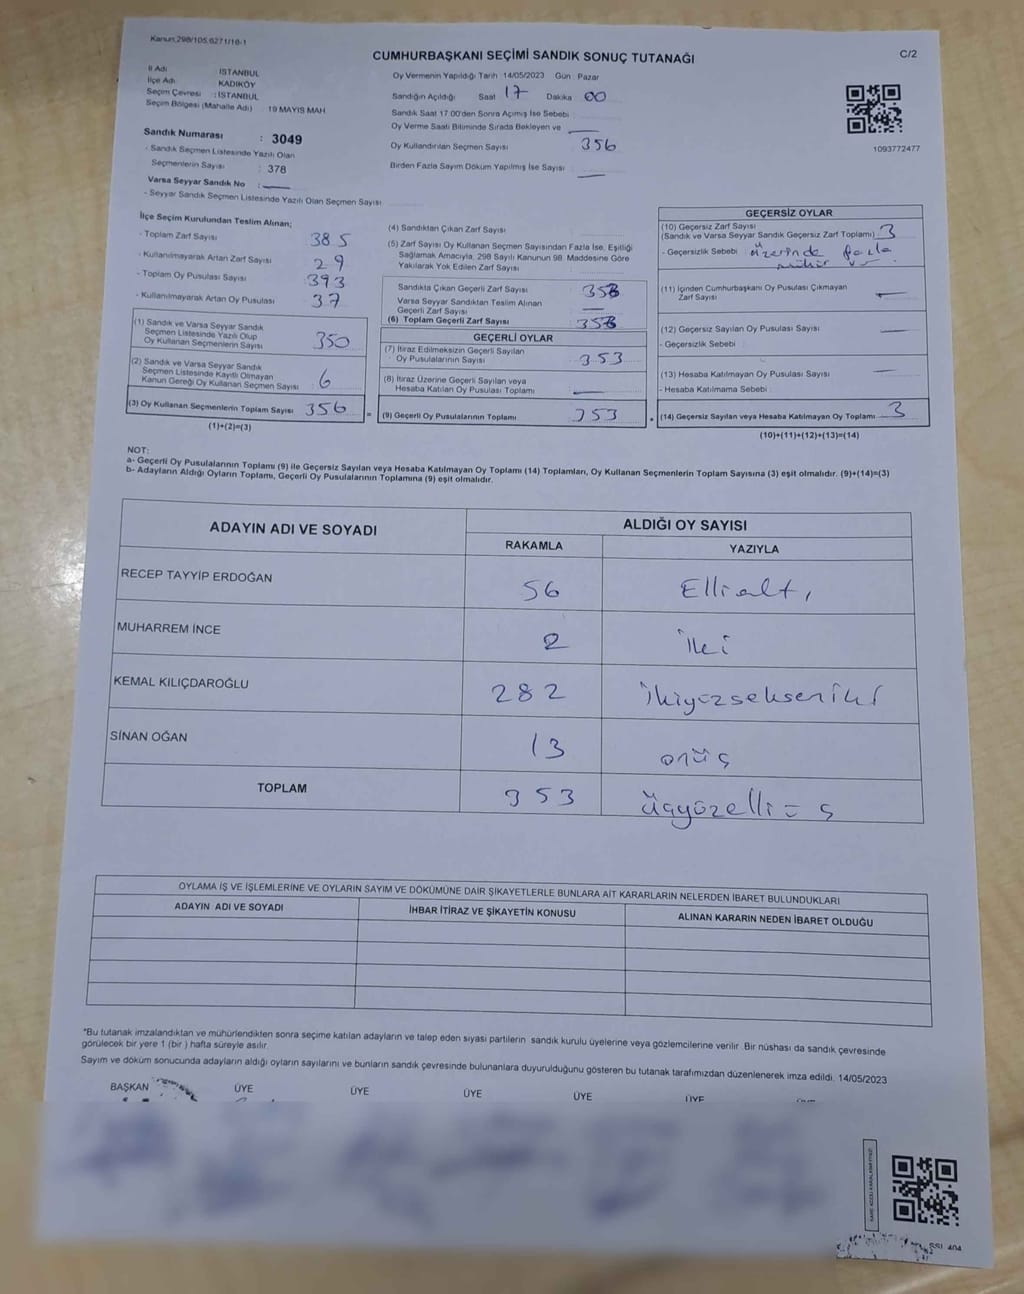 Kanun 298/105,6271/16-1
CUMHURBAŞKANI SEÇİMİ SANDIK SONUÇ TUTANAĞI
C/2
İl Adı : İSTANBUL
İlçe Adı KADIKÖY
Seçim Çevresi : İSTANBUL
Seçim Bölgesi (Mahalle Adı) : 19 MAYIS MAH
Sandık Numarası : 3049
- Sandık Seçmen Listesinde Yazılı Olan
Seçmenlerin Sayısı : 378
Varsa Seyyar Sandık No : —
- Seyyar Sandık Seçmen Listesinde Yazılı Olan Seçmen Sayısı
Oy Vermenin Yapıldığı Tarih 14/05/2023 Gün Pazar
Sandığın Açıldığı Saat 17 Dakika 00
Sandık Saat 17.00'den Sonra Açımış İse Sebebi
Oy Verme Saati Bitiminde Sırada Bekleyen ve —
Oy Kullandırılan Seçmen Sayısı 356
Birden Fazla Sayım Döküm Yapılmış İse Sayısı —
1093772477
İlçe Seçim Kurulundan Teslim Alınan;
- Toplam Zarf Sayısı 385
- Kullanılmayarak Artan Zarf Sayısı 29
- Toplam Oy Pusulası Sayısı 393
- Kullanılmayarak Artan Oy Pusulası 37
(1) Sandık ve Varsa Seyyar Sandık
Seçmen Listesinde Yazılı Olup
Oy Kullanan Seçmenlerin Sayısı 350
(2) Sandık ve Varsa Seyyar Sandık
Seçmen Listesinde Kayıtlı Olmayan
Kanun Gereği Oy Kullanan Seçmen Sayısı 6
(3) Oy Kullanan Seçmenlerin Toplam Sayısı 356 =
(1)+(2)=(3)
(4) Sandıktan Çıkan Zarf Sayısı
(5) Zarf Sayısı Oy Kullanan Seçmen Sayısından Fazla İse, Eşitliği
Sağlamak Amacıyla, 298 Sayılı Kanunun 98. Maddesine Göre
Yakılarak Yok Edilen Zarf Sayısı
Sandıkta Çıkan Geçerli Zarf Sayısı
Varsa Seyyar Sandıktan Teslim Alınan
Geçerli Zarf Sayısı —
(6) Toplam Geçerli Zarf Sayısı
GEÇERLİ OYLAR
(7) İtiraz Edilmeksizin Geçerli Sayılan
Oy Pusulalarının Sayısı 353
(8) İtiraz Üzerine Geçerli Sayılan veya
Hesaba Katılan Oy Pusulası Toplamı —
(9) Geçerli Oy Pusulalarının Toplamı 353
GEÇERSİZ OYLAR
(10) Geçersiz Zarf Sayısı
(Sandık ve Varsa Seyyar Sandık Geçersiz Zarf Toplamı) 3
- Geçersizlik Sebebi üzerinde fazla
mühür
(11) İçinden Cumhurbaşkanı Oy Pusulası Çıkmayan
Zarf Sayısı —
(12) Geçersiz Sayılan Oy Pusulası Sayısı —
- Geçersizlik Sebebi
(13) Hesaba Katılmayan Oy Pusulası Sayısı —
- Hesaba Katılmama Sebebi
(14) Geçersiz Sayılan veya Hesaba Katılmayan Oy Toplamı 3
(10)+(11)+(12)+(13)=(14)
NOT:
a- Geçerli Oy Pusulalarının Toplamı (9) ile Geçersiz Sayılan veya Hesaba Katılmayan Oy Toplamı (14) Toplamları, Oy Kullanan Seçmenlerin Toplam Sayısına (3) eşit olmalıdır. (9)+(14)=(3)
b- Adayların Aldığı Oyların Toplamı, Geçerli Oy Pusulalarının Toplamına (9) eşit olmalıdır.
ADAYIN ADI VE SOYADI
ALDIĞI OY SAYISI
RAKAMLA
YAZIYLA
RECEP TAYYİP ERDOĞAN 56 Ellialtı
MUHARREM İNCE 2 iki
KEMAL KILIÇDAROĞLU 282 ikiyüzsekseniki
SİNAN OĞAN 13 onüç
TOPLAM 353 üçyüzelliüç
OYLAMA İŞ VE İŞLEMLERİNE VE OYLARIN SAYIM VE DÖKÜMÜNE DAİR ŞİKAYETLERLE BUNLARA AİT KARARLARIN NELERDEN İBARET BULUNDUKLARI
ADAYIN ADI VE SOYADI
İHBAR İTİRAZ VE ŞİKAYETİN KONUSU
ALINAN KARARIN NEDEN İBARET OLDUĞU
*Bu tutanak imzalandıktan ve mühürlendikten sonra seçime katılan adayların ve talep eden siyasi partilerin sandık kurulu üyelerine veya gözlemcilerine verilir. Bir nüshası da sandık çevresinde
görülecek bir yere 1 (bir ) hafta süreyle asılır.
Sayım ve döküm sonucunda adayların aldığı oyların sayılarını ve bunların sandık çevresinde bulunanlara duyurulduğunu gösteren bu tutanak tarafımızdan düzenlenerek imza edildi. 14/05/2023
BAŞKAN ÜYE ÜYE ÜYE ÜYE ÜYE
SSI 404